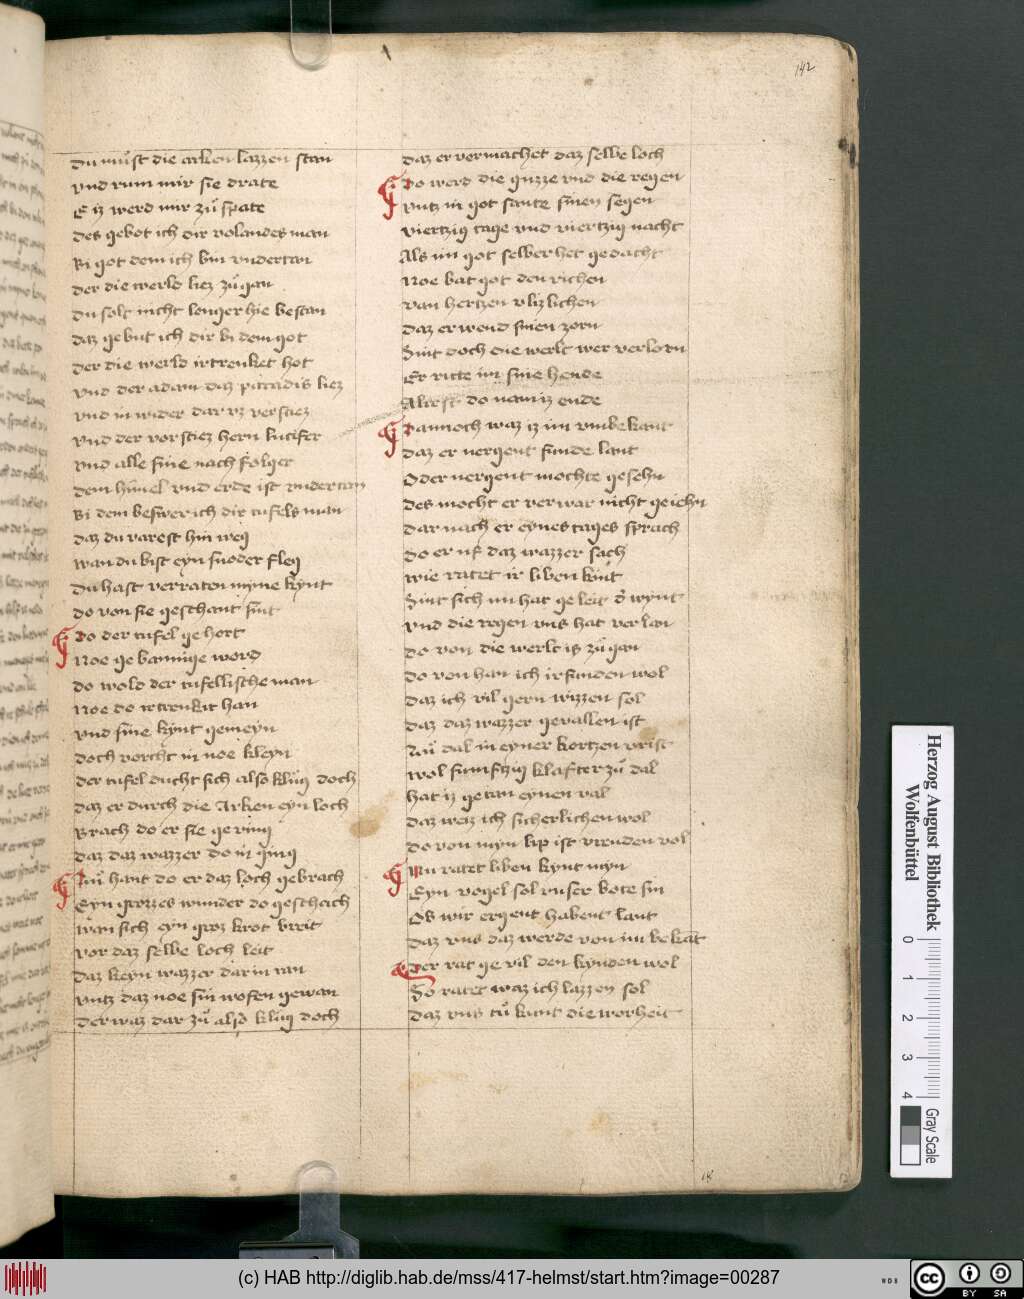 142
du mu͑st die arken lazzen stan
vnd rum mir sie drate
E iz werd mir zu͑ spate
des gebot ich dir volandes man
Bi got dem ich bin vndertan
der die werld liez zu͑ gan
du solt nicht lenger hie bestan
daz gebut ich dir bi dem got
der die werld irtrenket hot
vnd der adam daz paradis liez
vnd in wider dar vz verstiez
vnd der vorstiez hern lucifer
vnd alle sine nach folger
dem hi̅mel vnd erde ist vndertan
Bi dem beswer ich dir tufels man
daz du varest hin weg
wan du bist eyn snoder fleg
du hast verraten myne kynt
do von sie geschant sint
do der tufel gehort
Noe gebannige word
do wold der tufellische man
Noe do irtrenkit han
vnd sine kynt gemeyn
doch vorcht in noe kleyn
der tufel ducht sich also klu͑g doch
daz er durch die Arken eyn loch
Brach do er sie gering
daz daz wazzer do in ging
Nu͑ hant do er daz loch gebrach
Eyn grozzes wunder do geschach
wan sich eyn groz krot breit
vor daz selbe loch leit
daz keyn wazzer dar in ran
vntz daz noe sin wofen gewan
der waz dar zu͑ also klu͑g doch
daz er vermachet daz selbe loch
Do werd die guzze vnd die regen
vntz in got sante sinen segen
viertzig tage vnd viertzig nacht
Als im got selber het gedacht
Noe bat got den richen
van hertzen vlizlichen
daz er wend sinen zorn
Sint doch die werlt wer verlorn
Er ricte im sine hende
Alrest do nam iz ende
Dannoch waz iz im vmbekant
daz er nergent funde lant
Oder nergent mochte gesehn
des mocht er verwar nicht geiehn
dar nach er eynes tages sprach
do er uf daz wazzer sach
wie ratet ir liben kint
Sint sich nu hat geleit d' wynt
vnd die regen vns hat verlan
do von die werlt is zu͑ gan
do von han ich irfunden wol
daz ich vil gern wizzen sol
daz daz wazzer gevallen ist
Nu͑ dal in eyner kortzen vrist
wol funftzig klafter zu͑ dal
hat iz getan eynen val
daz weiz ich sicherlichen wol
do von myn lip ist vreuden vol
Nu ratet liben kynt myn
Eyn vogel sol vnser bote sin
Ob wir ergent habent lant
daz vns daz werde von im bekāt
Der rat geuil den kynden wol
So ratet waz ich lazzen sol
daz vns tu͑ kunt die worheit
Herzog August Bibliothek
Wolfenbüttel
0 1 2 3 4
Gray Scale
(c) HAB http://diglib.hab.de/mss/417-helmst/start.htm?image=00287
WDB
cc BY SA